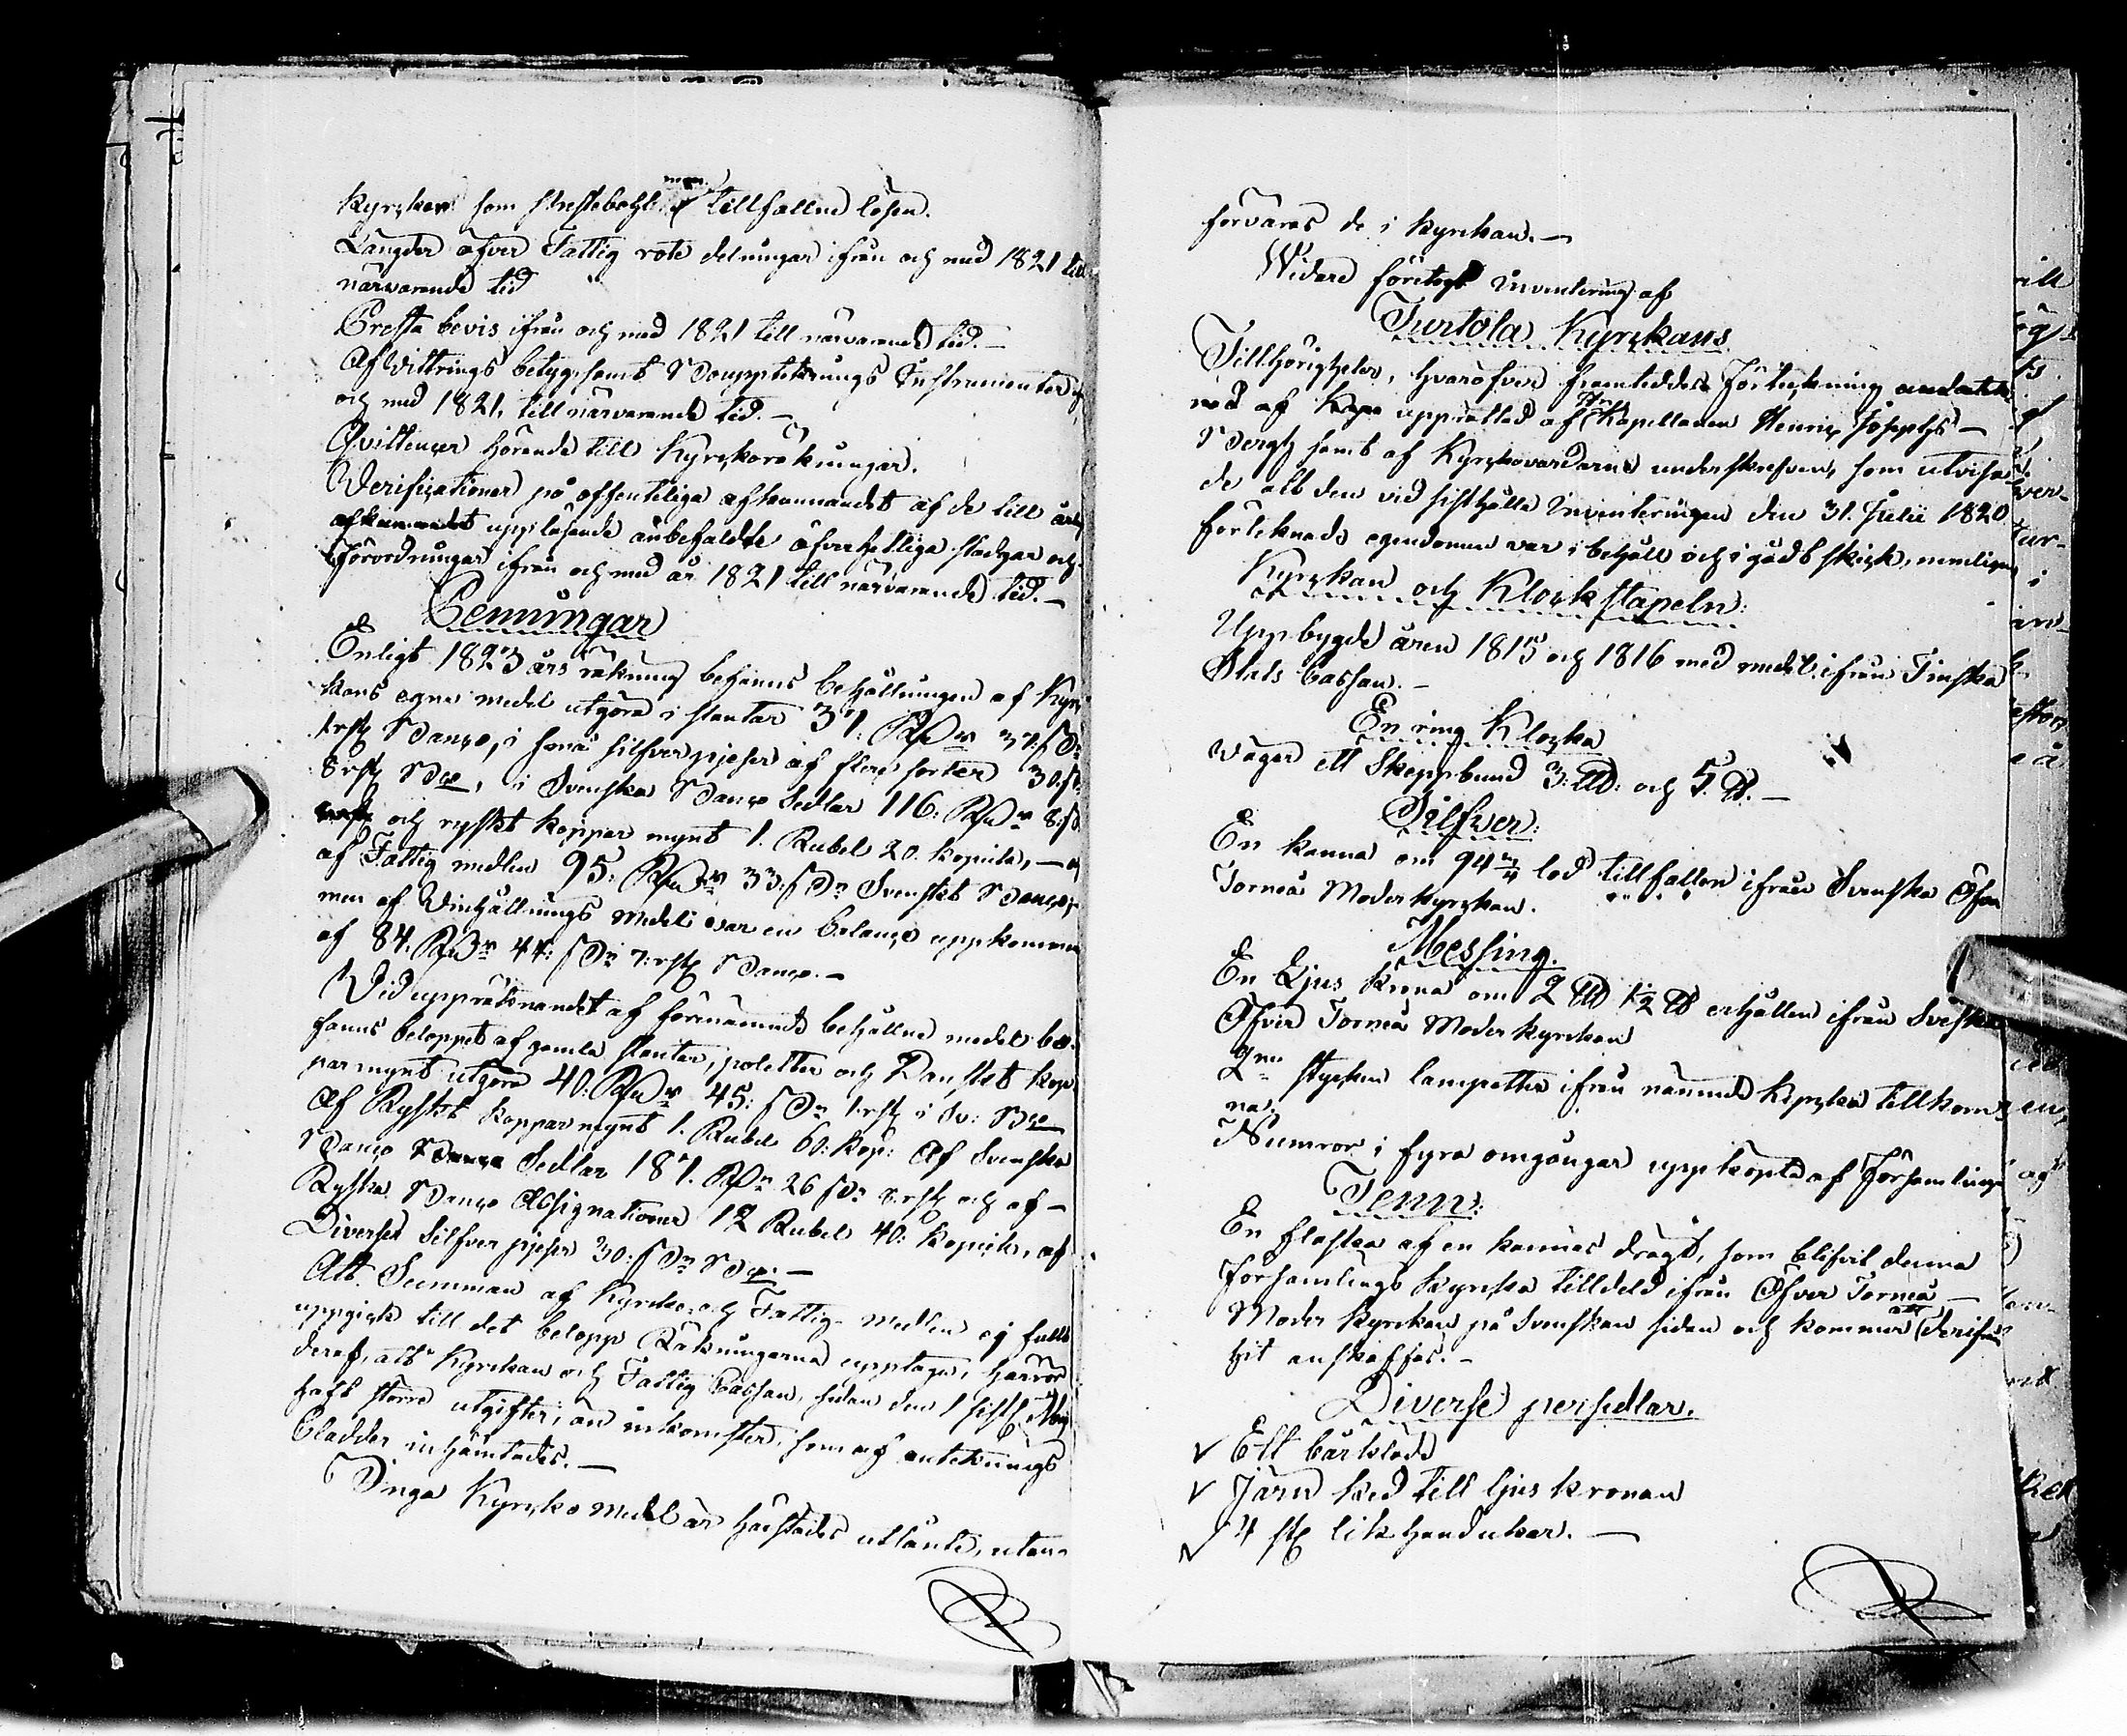 Kyrkan som tillfallne lösen.
Längder öfver Fattig rote delningar ifrån och med 1821 till
närvarande tid
Presta bevis ifrån och med 1821 till närvarande tid. —
Af vittrings betyg samt Instrumenter
och med 1821, till närvarande tid. —
Qvittencer hörande till Kyrckoräkningar.
Verificationer på offenteliga afkannandet af de till
uppläsande anbefaldte öfverhetliga stadgar och
Förordningar ifrån och med år 1821 till närvarande tid. —
Penningar
Enligt 1823 års räkning befanns behållningen af Kyrc
kans egna medel utgöra i slantar 37.
Banco, i små silfver pjeser af flere sorter 30.
8 rst Bco, i Svenska Banco Sedlar 116: 8:
och ryskt koppar mynt 1. Rubel 20. kopeik, —
af Fattig medlen 95: 33: Svenskt Banco,
men af Vinhållnings medel var en balance uppkommen
af 84. 44: 7: rst Banco. —
Vid uppräknandet af förenämnde behållne medel be-
fanns beloppet af gamla slantar, poletter och Danskt kop-
par mynt utgöra 40: 45: 1. rst i Sv: Bco
Af Ryskt koppar mynt 1. Rubel 60: kop: Af Svenska
Banco Sedlar 187. 26 8. rst och af —
Ryska Banco Assignationer 12 Rubel 40: Kopeik, af
Diverse Silfver pjeser 30: Bco. —
Att Summan af Kyrcko- och Fattig- medlen ej fullt
uppgick till det belopp Räkningarna upptager, härrör
deraf, att Kyrckan och Fattig Cassan, sedan den 1 sistl. Maij
haft större utgifter, än inkomster, som af antecknings
bladder inhämtades. —
Inga Kyrcko medel är härstädes utlånte, utan
förvaras de i Kyrckan. —
Widare företogs inventering af
Turtola Kyrckans
Tillhörigheter, hvaröfver framteddes Förteckning
af upprättad af Hr Kapellanen Henric Josephs —
Bergh samt af Kyrckovärdarne underskrefven, som utvisa-
de att den vid sisthållte inventeringen den 31. Julii 1820
förteknade egendomen var i behåll och i godt skick, nemligen
Kyrckan och Klockstapeln:
Uppbygde åren 1815 och 1816 med medel ifrån Finska
Stats Cassan. —
En ring Klocka
Wäger ett Skeppund 3: L℔: och 5. ℔. —
Silfver:
En kanna om 94 3/4 lod tillfallen ifrån Svenska Öfver
Torneå Moderkyrckan.
Messing.
En Ljus krona om 2 L℔ 1½ ℔ erhållen ifrån Svenska
Öfver Torneå Moderkyrckan
2ne stycken lampetter ifrån nämnde Kyrcka tillkom-
na.
Numror i fyra omgångar uppköpte af Församlingen
Tenn:
En flaska af en kannas drägt, som blifvit denna
Församlings Kyrcka tilldeld ifrån Öfver Torneå —
Moder Kyrckan på Svenskan sidan och kommer att derifrån
hit anskaffas. —
Diverse persedlar.
✓ Ett bårkläde
✓ Järn ked till ljus kronan
✓ 4 st lik handukar. —